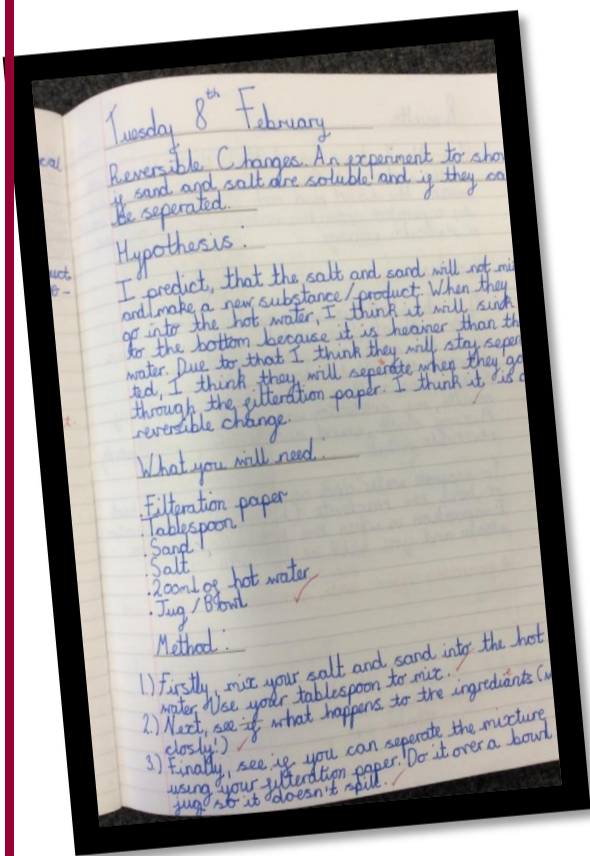 cal
uct
Tuesday 8th February
Reversible Changes. An experiment to show
if sand and salt are soluble and if they ca
be seperated.
Hypothesis:
I predict, that the salt and sand will not mi
and make a new substance/product. When they
go into the hot water, I think it will sink
to the bottom because it is heavier than th
water. Due to that I think they will stay seper
ted, I think they will seperate when they go
through the filteration paper. I think it is a
reversible change.
What you will need:
· Filteration paper
· Tablespoon
· Sand
· Salt
· 200ml of hot water
· Jug / Bowl
Method:
1.) Firstly, mix your salt and sand into the hot
water. Use your tablespoon to mix.
2.) Next, see if what happens to the ingrediants (w
closly!)
3.) Finally, see if you can seperate the mixture
using your filteration paper. Do it over a bowl
jug so it doesn't spill.